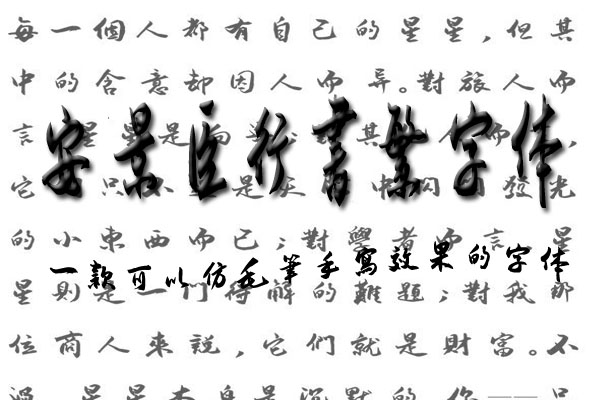 每一個人都有自己的星星,但其
中的含意却因人而异。對旅人而
言 星星是向 對其 人而 ,
安景臣行書繁字体
它 只不 是 中閃 發光
的小東西而已;對學者而言,星
一款可以仿毛筆手寫效果的字体
星則是一門待解的難題;對我那
位商人來說,它們就是財富。不
過 星星本身是沉默的 你——只